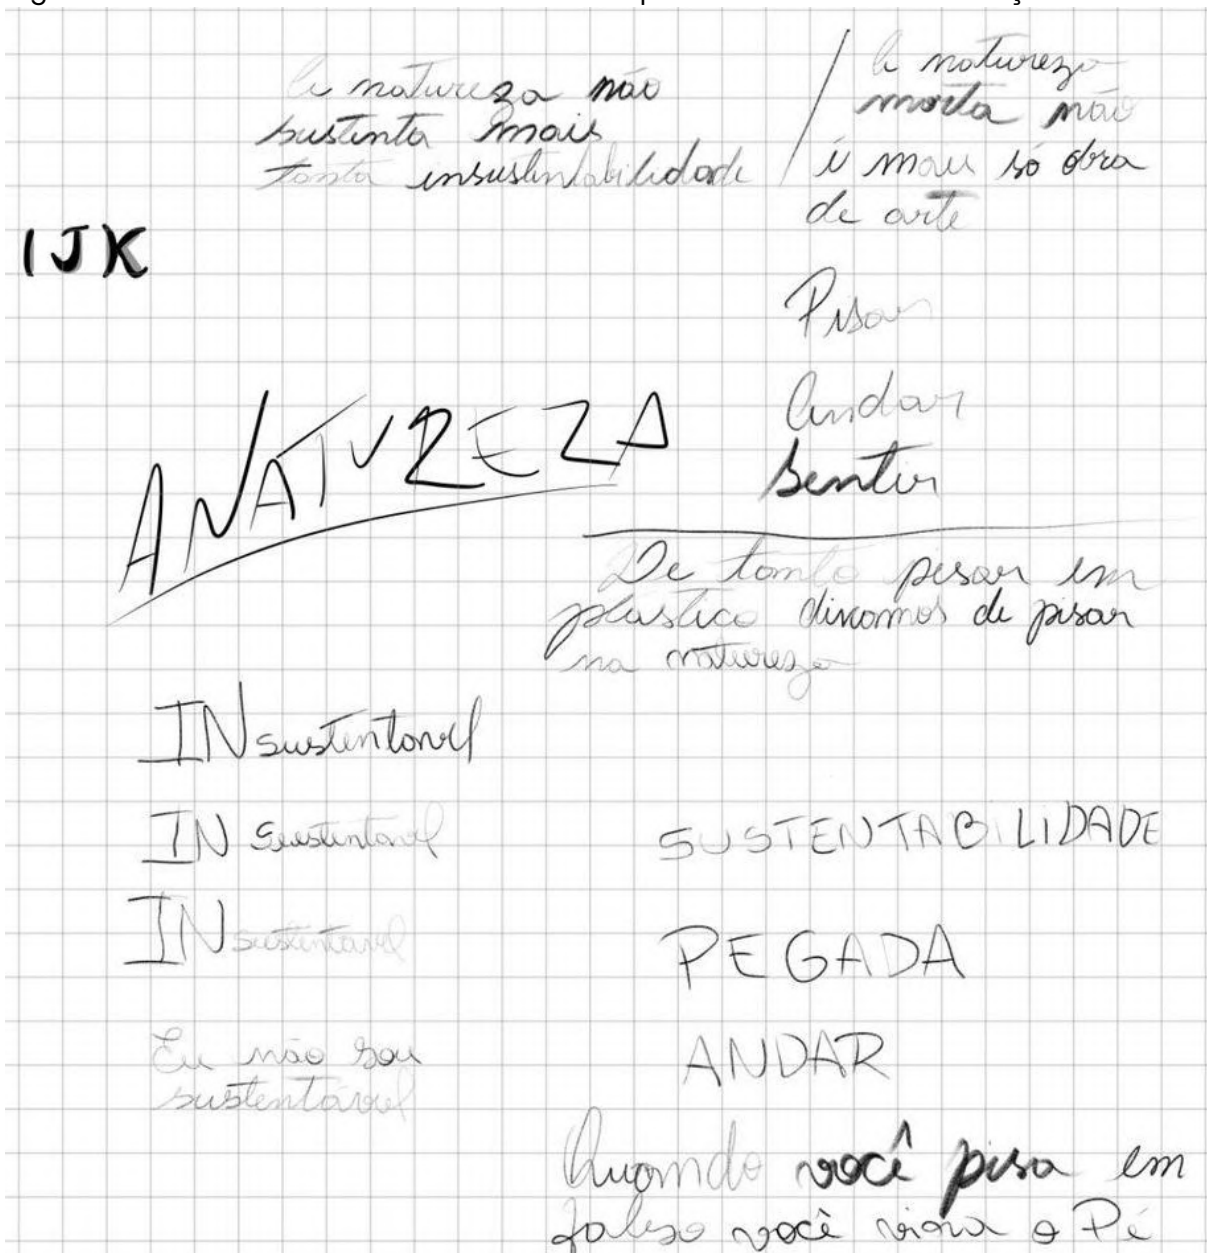 A natureza não
sustenta mais
tanta insustentabilidade
A natureza
morta não
é mais só obra
de arte
IJK
Pisar
Andar
Sentir
A NATUREZA
De tanto pisar em
plastico dixamos de pisar
na natureza
INsustentavel
IN Sustentavel
INsustentavel
Eu não sou
sustentável
SUSTENTABILIDADE
PEGADA
ANDAR
Quando você pisa em
falso você vira o Pé